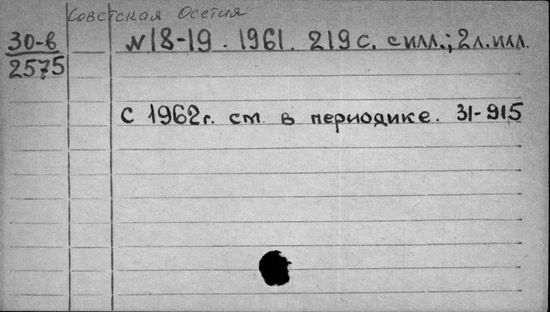 Советская Осетия
30-6
2575
№18-19. 1961. 219 с. с илл.; 2 л. илл.
С 1962 г. см. в периодике. 31-915